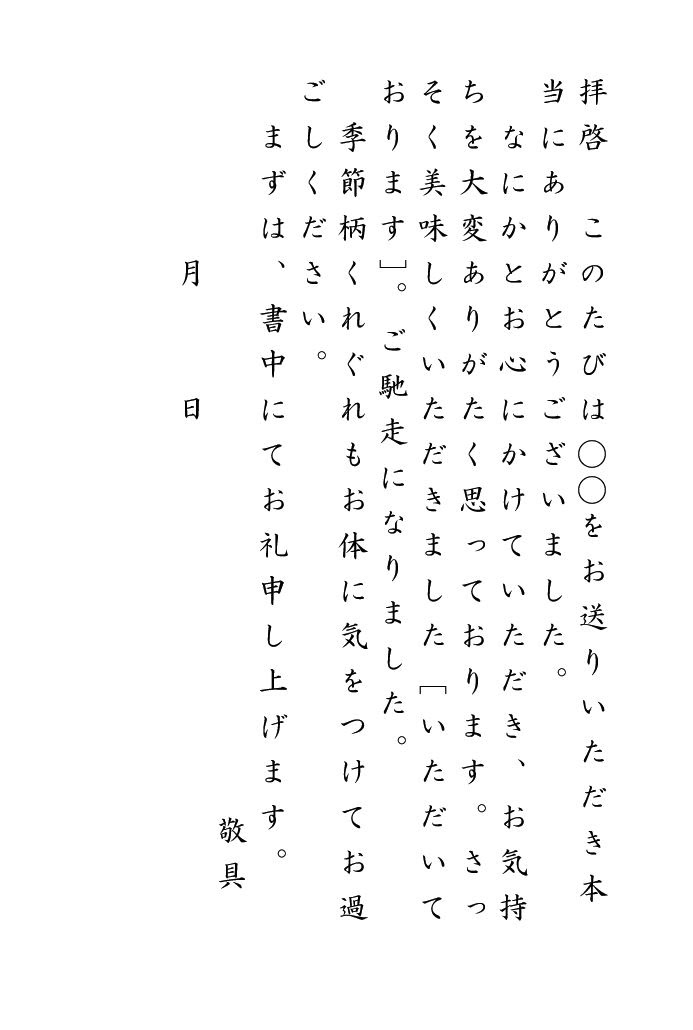 拝啓　このたびは〇〇をお送りいただき本
当にありがとうございました。
　なにかとお心にかけていただき、お気持
ちを大変ありがたく思っております。さっ
そく美味しくいただきました［いただいて
おります］。ご馳走になりました。
　季節柄くれぐれもお体に気をつけてお過
ごしください。
　まずは、書中にてお礼申し上げます。
敬具
月　　日